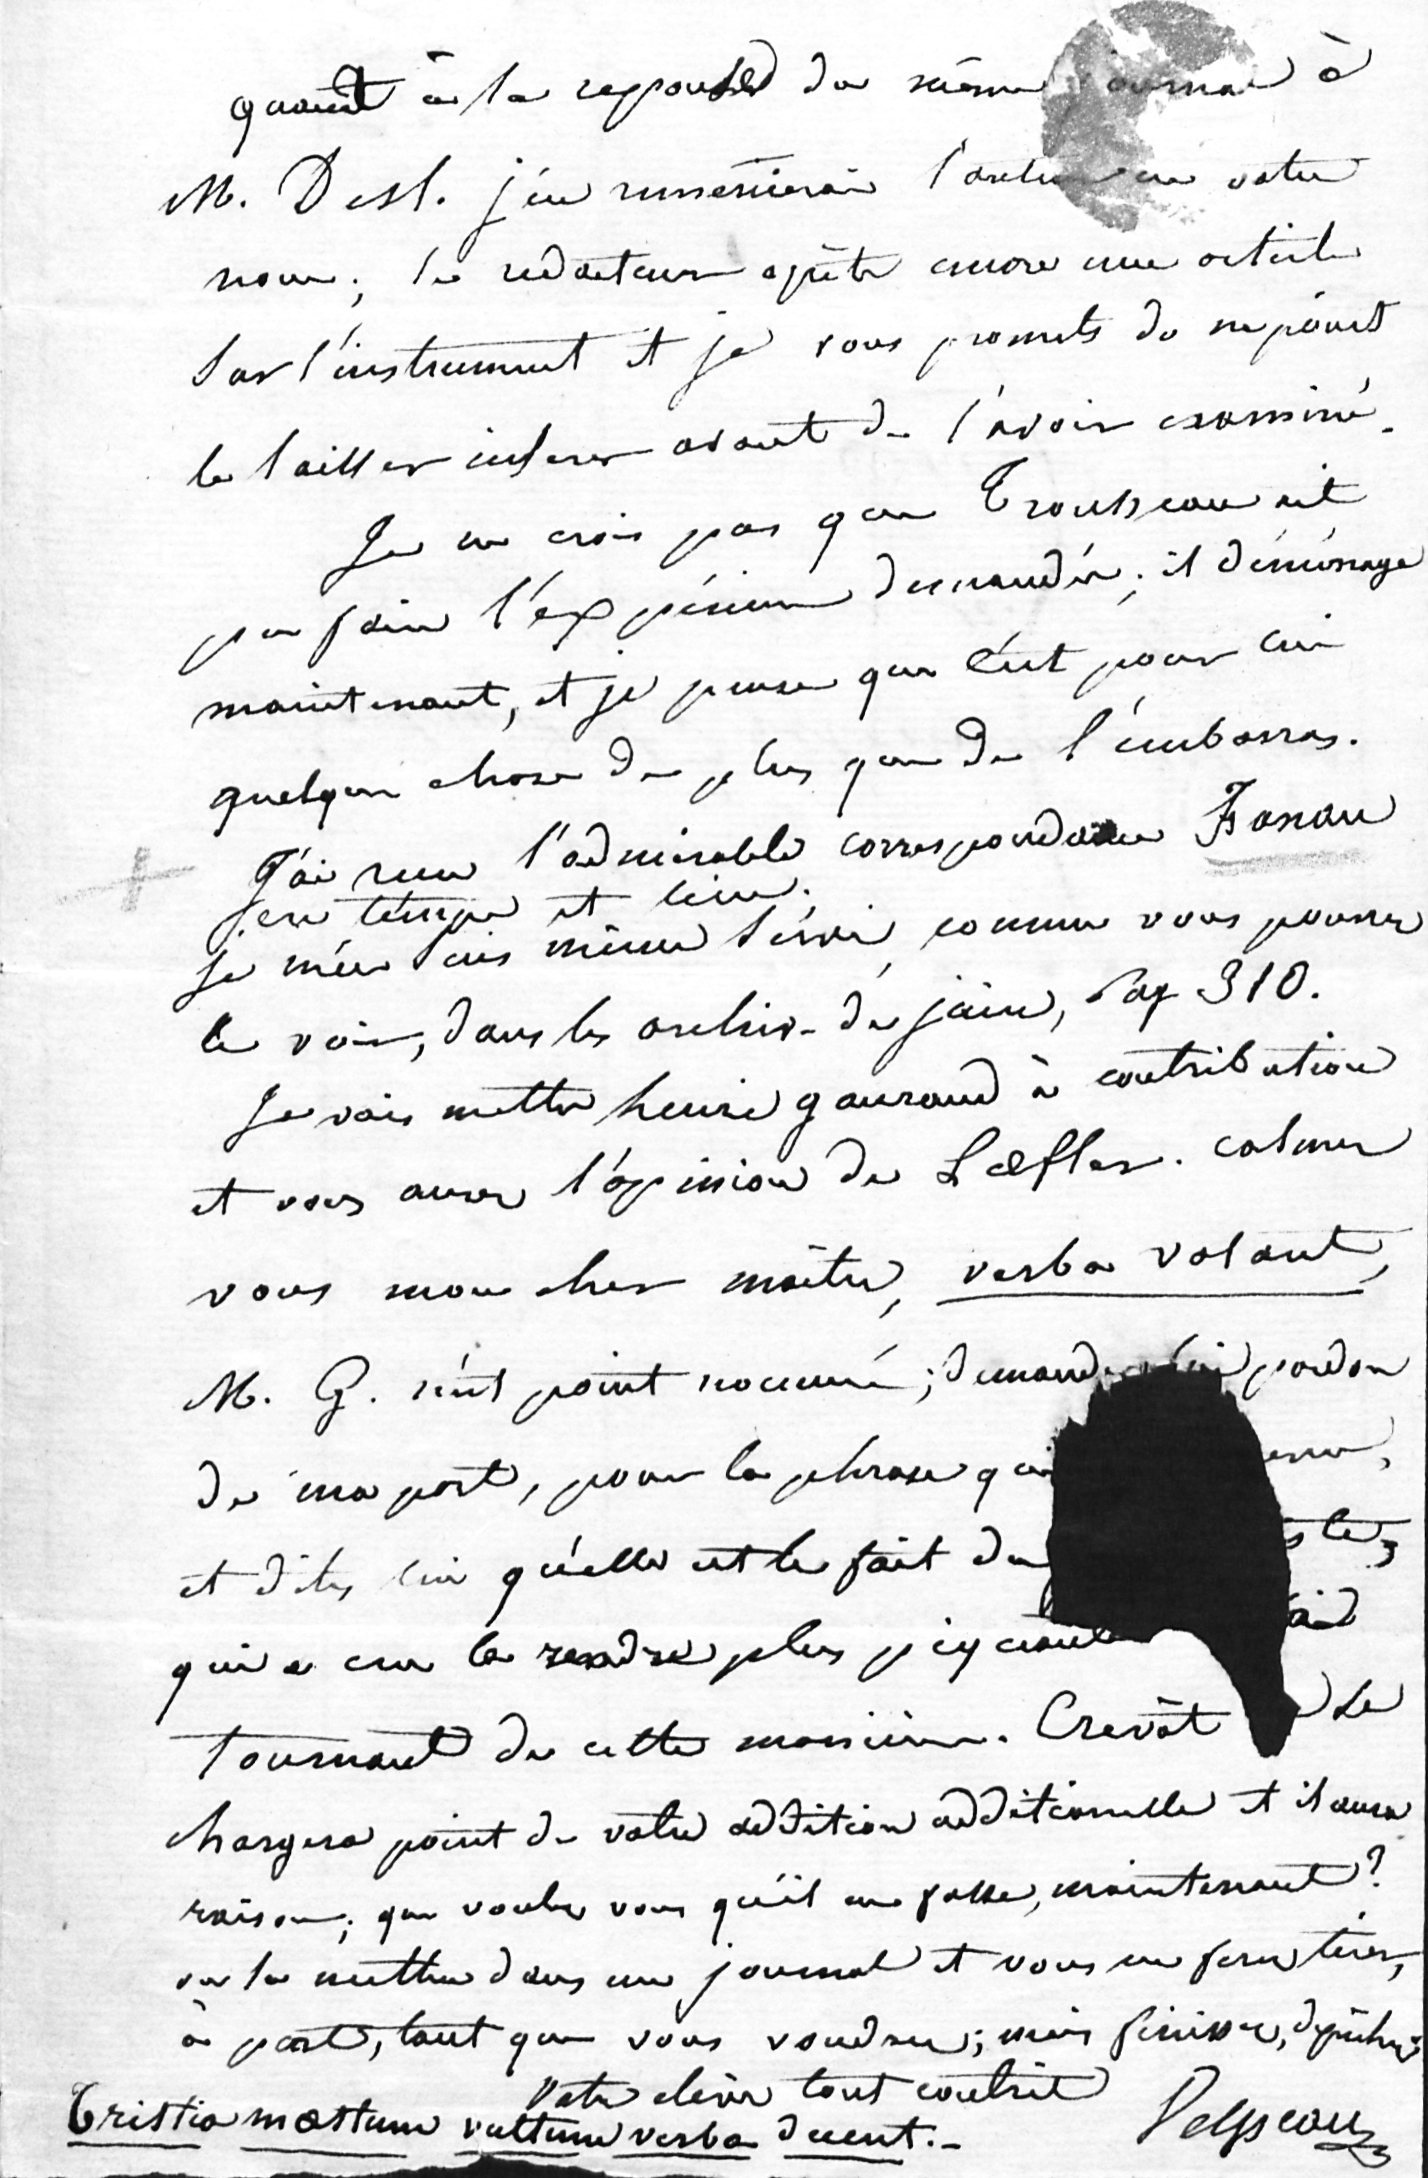 quant à la reponse du même journal à
M. Desl. j'en remercierai l'auteur en votre
nom; le redacteur apprête encore un article
sur l'instrument et je vous promets de ne point
le laisser inserer avant de l'avoir examiné.
Je ne crois pas que Trousseau ait
pu faire l'expérience demandée; il déménage
maintenant, et je pense que c'est pour lui
quelque chose de plus que de l'embarras.
J'ai reçu l'admirable correspondance
en temps et lieu.
je m'en suis même servi, comme vous pourrez
le voir, dans les archiv. de juin, pag 310.
Je vais mettre henri gouraud à contribution
et vous aurez l'opinion de Lœfler. calmez
vous mon cher maître, verba volant,
M. G. n'est point nommé; demandez lui pardon
de ma part, pour la phrase qui
et dites lui qu'elle est le fait du
qui a cru la rendre plus piquante
tournant de cette manière. Crevôt se
chargera point de votre addition additionnelle et il aura
raison; que voulez vous qu'il en fasse, maintenant?
on la mettra dans un journal et vous en ferez tirer,
à part, tant que vous voudrez; mais finissez, dépêchez
votre élève tout contrit
Tristia mœstum vultum verba decent.-